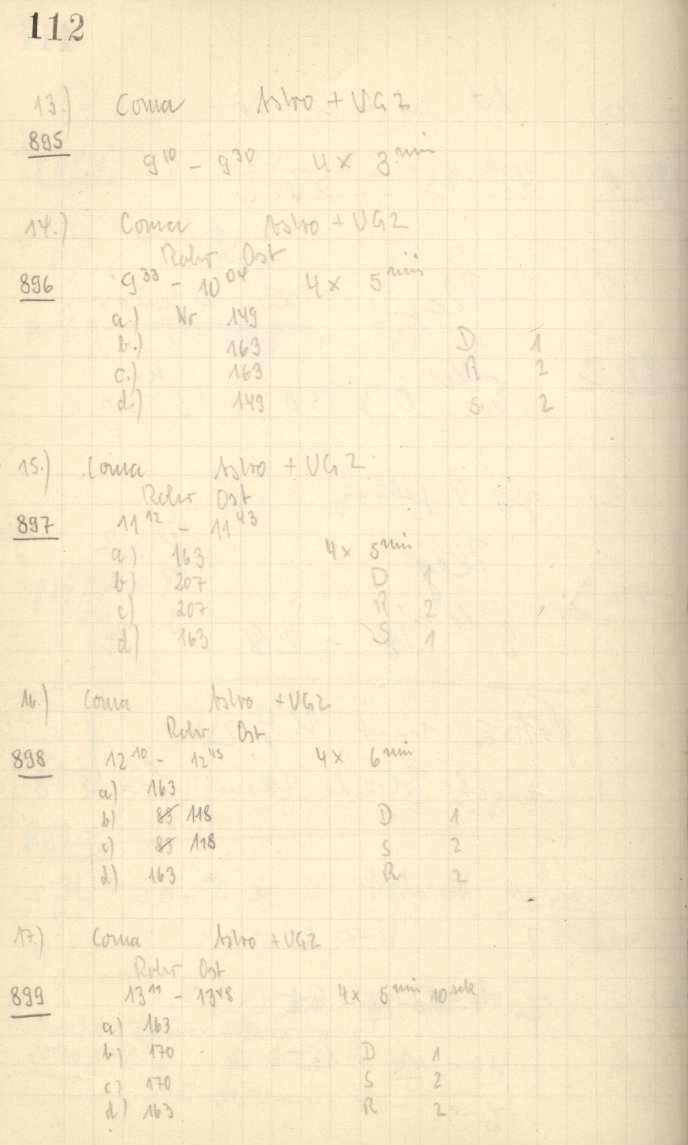 112
13.) Coma Astro + UG2
895
9¹⁰ – 9³⁰ 4 x 3 min
14.) Coma Astro + UG2
Rohr Ost
896 9³³ – 10⁰⁴ 4 x 5 min
a.) Nr 149
b.) 163 D 1
c.) 163 R 2
d.) 149 S. 2
15.) Coma Astro + UG2
Rohr Ost
897 11¹² – 11⁴³
4 x 5 min
a) 163
b) 207 D 1
c) 207 R 2
d) 163 S 1
16.) Coma Astro + UG2
Rohr Ost
898 12¹⁰ – 12⁴⁵ 4 x 6 min
a) 163
b) 85 118 D 1
c) 85 118 S 2
d) 163 R 2
17.) Coma Astro + UG2
Rohr Ost
899 13¹¹ – 13⁴⁸ 4 x 5 min 10 sek
a) 163
b) 170 D 1
c) 170 S 2
d) 163 R 2